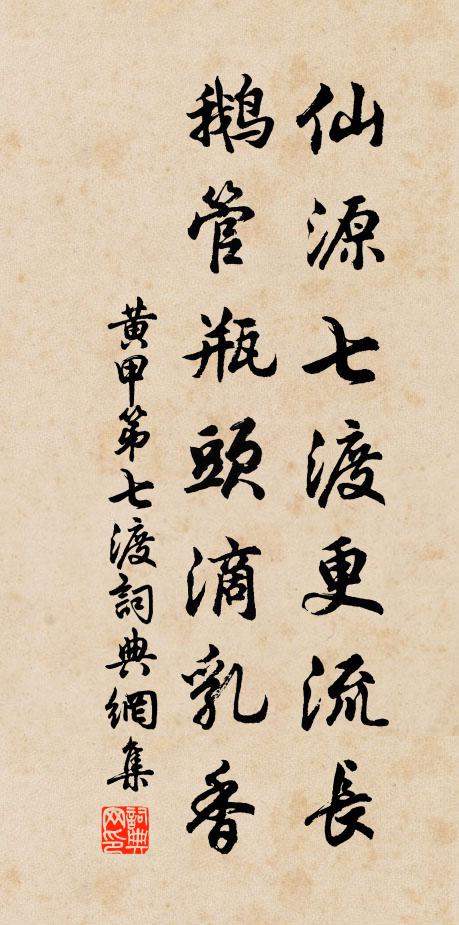 仙源七渡更流長
鵝管瓶頭滴乳香
黃甲第七渡詞典網集
詞典網印